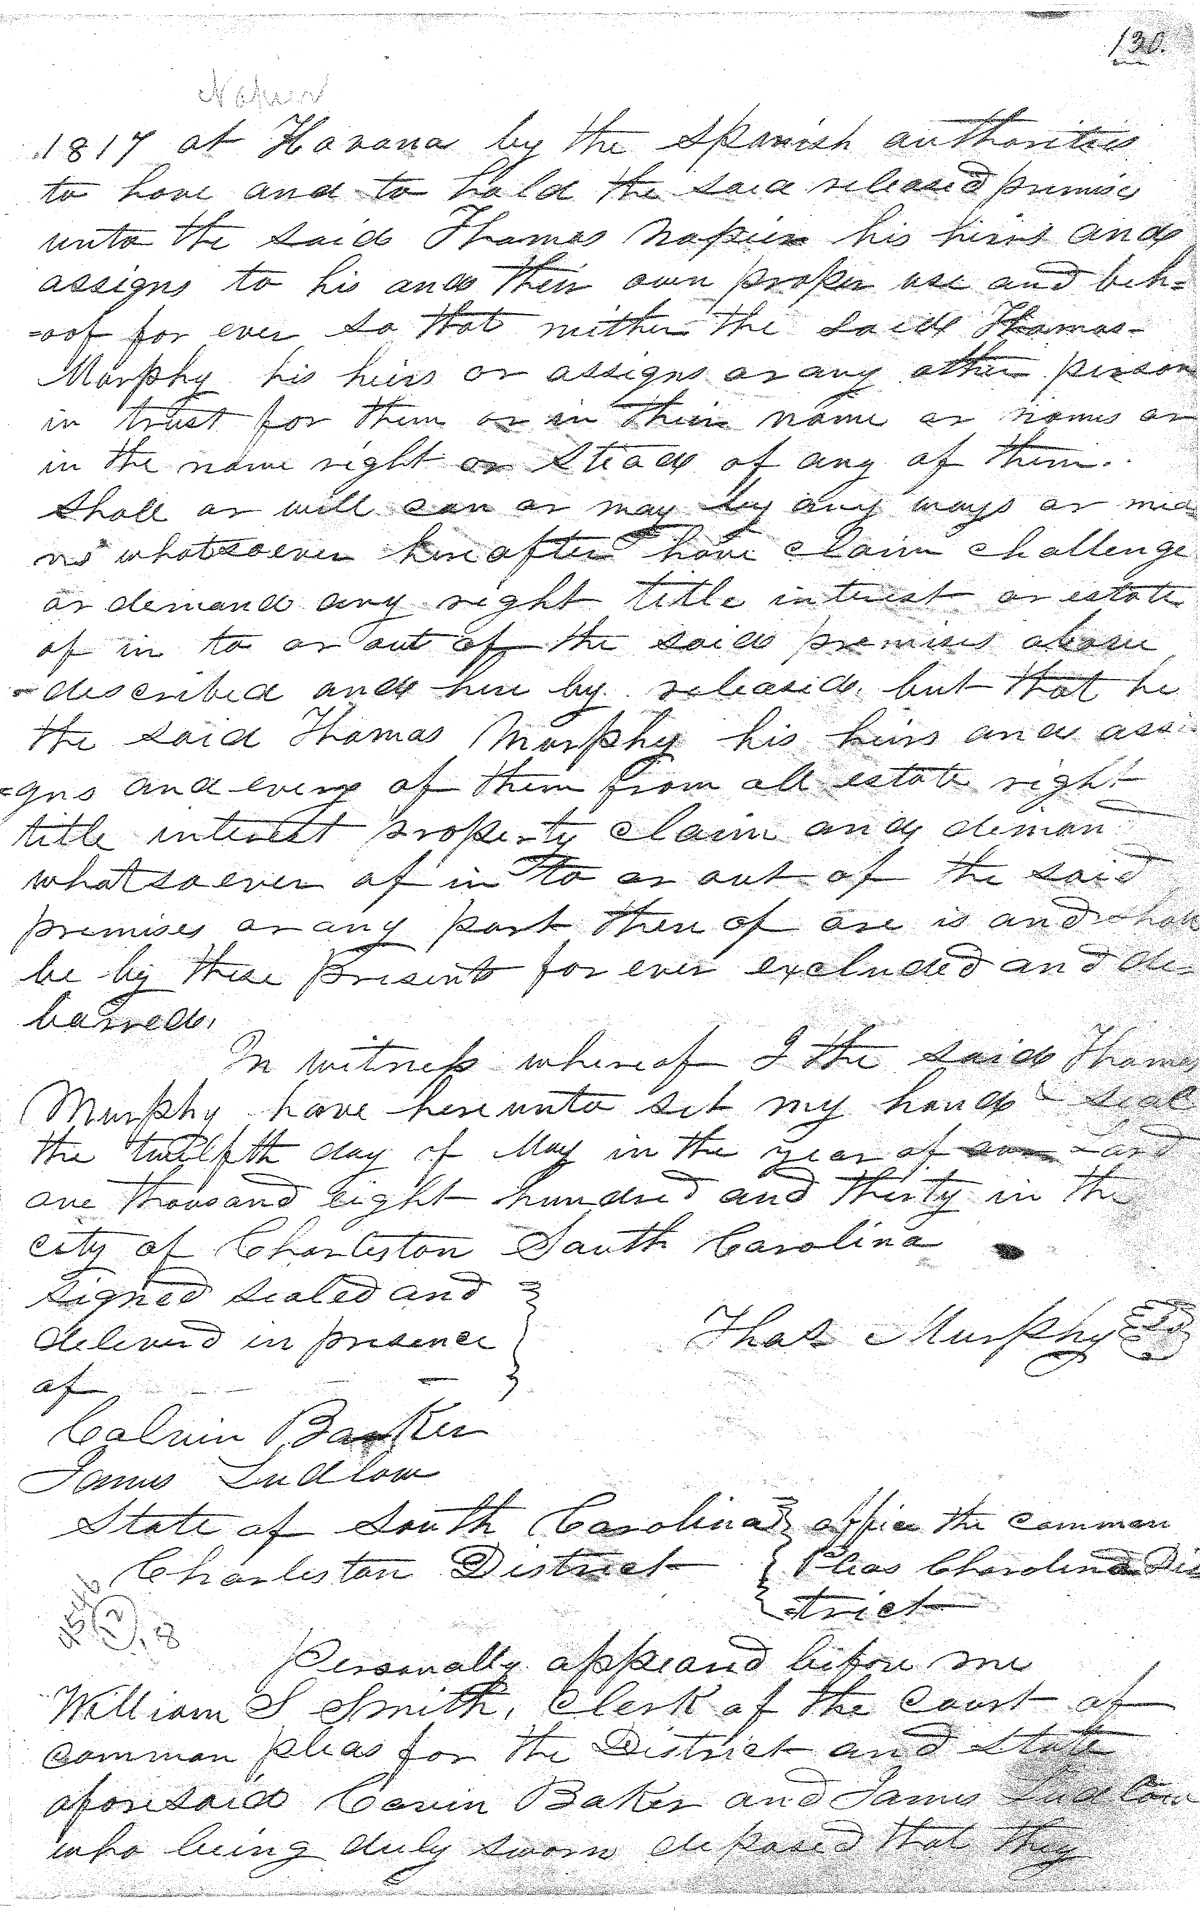 130.
Napier
1817 at Havana by the Spanish authorities
to have and to hold the said released premises
unto the said Thomas Napier his heirs and
assigns to his and their own proper use and beh=
=oof for ever so that neither the said Thomas
Murphy his heirs or assigns or any other person
in trust for them or in their name or names or
in the name right or stead of any of them.
shall or will can or may by any ways or mea
ns whatsoever hereafter have claim challenge
or demand any right title interest or estate
of in to or out of the said premises above
-described and here by released, but that he
the said Thomas Murphy his heirs and assi
=gns and every of them from all estate right
title interest property claim and deman
whatsoever of in to or out of the said
premises or any part there of are is and shall
be by these presents for ever excluded and de=
barred.
In witness whereof I the said Thomas
Murphy have hereunto set my hand & seal
the twelfth day of May in the year of our Lord
one thousand eight hundred and thirty in the
city of Charleston South Carolina
signed sealed and
delivered in presence
of
Thos Murphy
Calvin Baker
James Ludlow
State of South Carolina } office the common
Charleston District } Pleas Charolina Dis
=trict
4546
12
.8
Personally appeard before me
William S Smith, Clerk of the Court of
common pleas for the District and State
aforesaid Cavin Baker and James Ludlow
who being duly sworn deposed that they